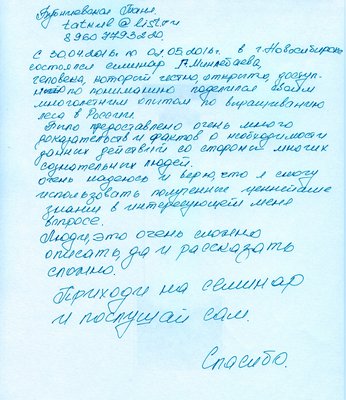 Таня.
8960 7793220.
С 30.04.2016г по 02.05.2016г. в г. Новосибирске
состоялся семинар А. Минлебаева,
человека, который честно, открыто, доступ-
но по пониманию поделился своим
многолетним опытом по выращиванию
леса в России.
Было предоставлено очень много
доказательств и фактов о необходимости
данных действий со стороны многих
сознательных людей.
очень надеюсь и верю, что я смогу
использовать полученные ценнейшие
знания в интересующем меня
вопросе.
Люди, это очень сложно
описать, да и рассказать
сложно.
Приходи на семинар
и послушай сам.
Спасибо.